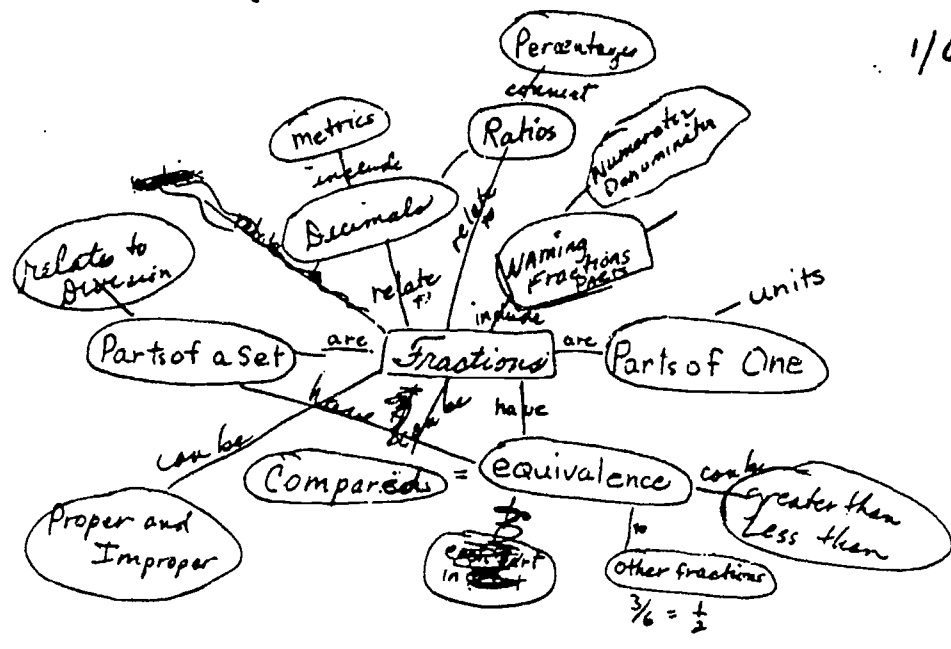 1/
Percentages
convert
metrics
Ratios
Numerator
Denominator
include
Decimals
relate
to
Naming
Fractions
Parts
relates to
Division
relate
to
include
units
Parts of a Set
are
Fractions
are
Parts of One
have
can be
have
can be
Compared
=
equivalence
can be
greater than
Less than
Proper and
Improper
to
in
other fractions
3/6 = 1/2